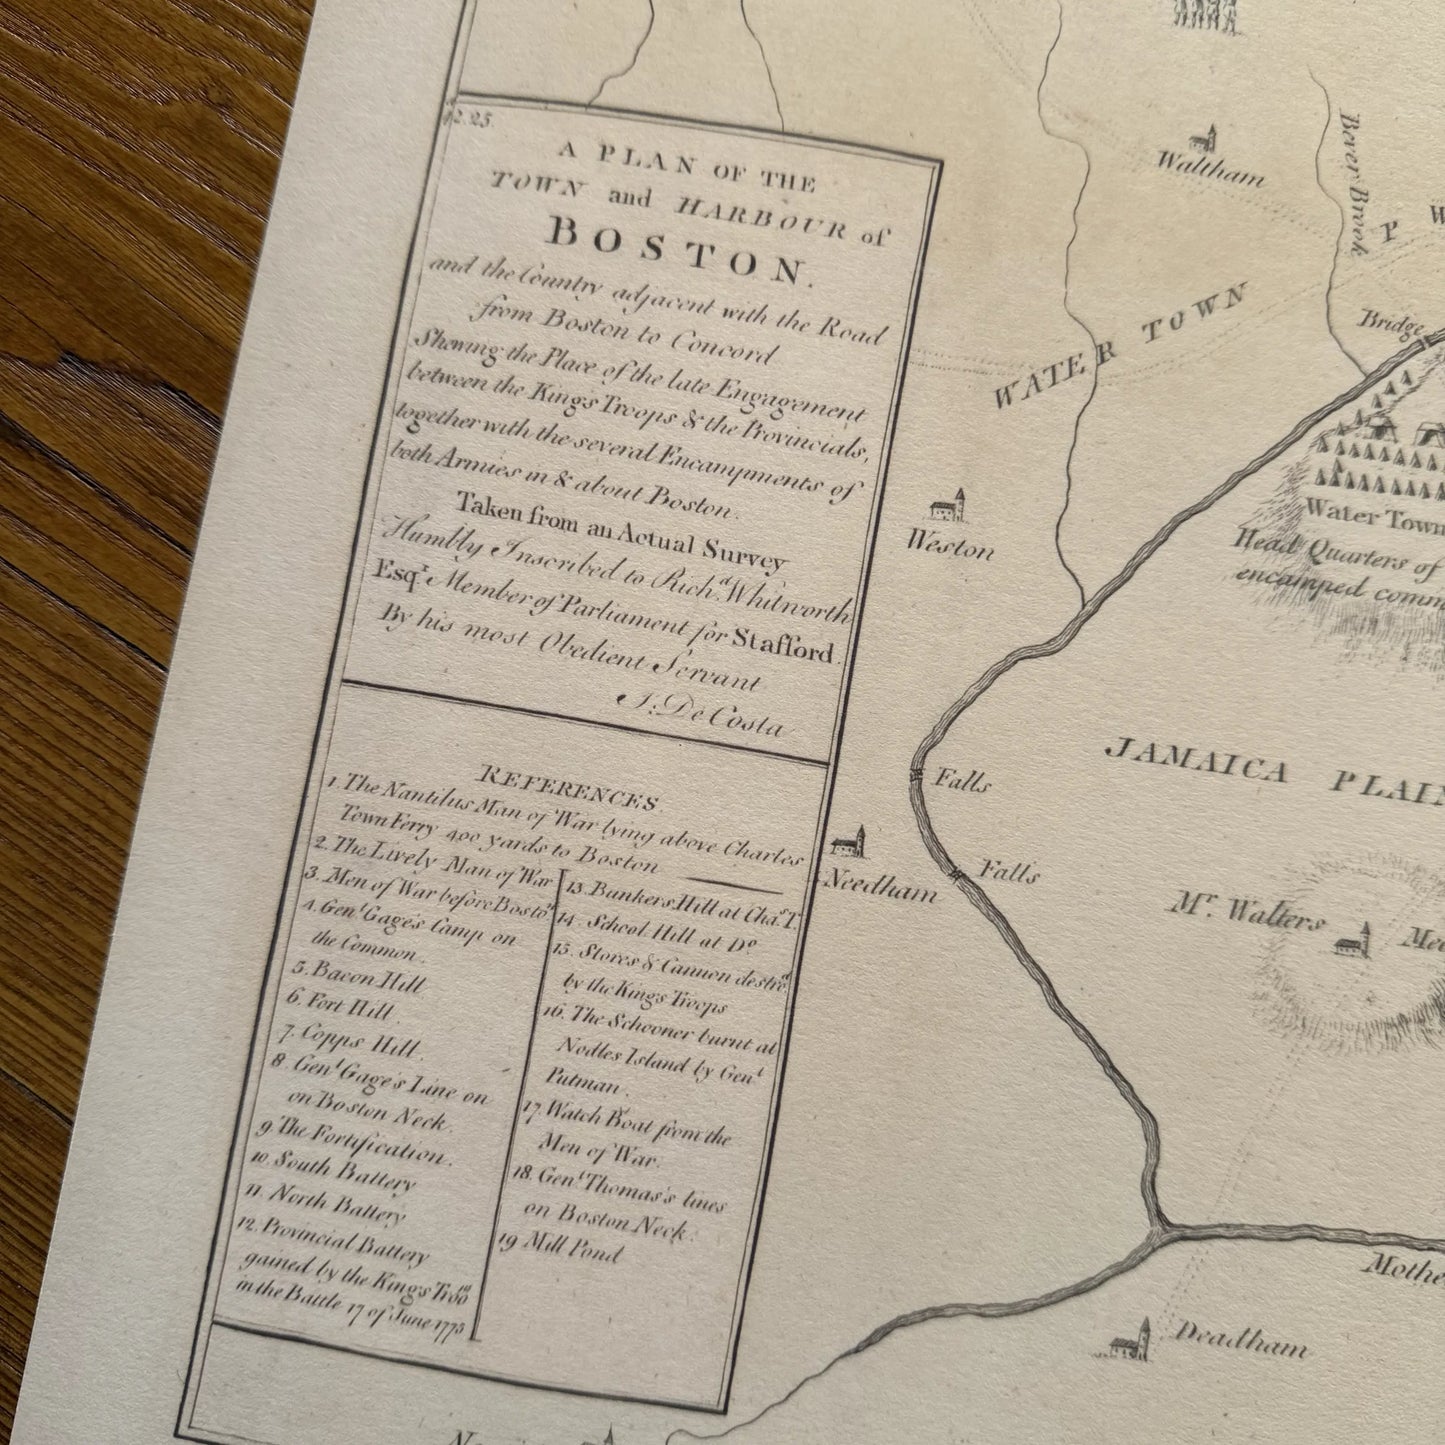 42.25.
A PLAN OF THE
TOWN and HARBOUR of
BOSTON.
and the Country adjacent with the Road
from Boston to Concord
Shewing the Place of the late Engagement
between the King's Troops & the Provincials,
together with the several Encampments of
both Armies in & about Boston.
Taken from an Actual Survey
Humbly Inscribed to Richd. Whitworth
Esqr. Member of Parliament for Stafford.
By his most Obedient Servant
J: De Costa
REFERENCES
1. The Nautilus Man of War lying above Charles
Town Ferry 400 yards to Boston
2. The Lively Man of War
3. Men of War before Boston
4. Genl. Gage's Camp on
the Common.
5. Bacon Hill
6. Fort Hill.
7. Copps Hill.
8. Genl. Gage's Line on
on Boston Neck.
9. The Fortification.
10. South Battery
11. North Battery
12. Provincial Battery
gained by the King's Troos
in the Battle 17 of June 1775
13. Bunkers Hill at Chas. T.
14. School Hill at Do
15. Stores & Cannon destrod
by the King's Troops
16. The Schooner burnt at
Nodles Island by Genl.
Putman.
17. Watch Boat from the
Men of War.
18. Genl. Thomas's lines
on Boston Neck.
19 Mill Pond
Waltham
Bever Brook
P
W
WATER TOWN
Bridge
Water Town
Head Quarters of
encamped comm
Weston
JAMAICA PLAIN
Falls
Falls
Needham
Mr. Walters
Me
Mothe
Deadham